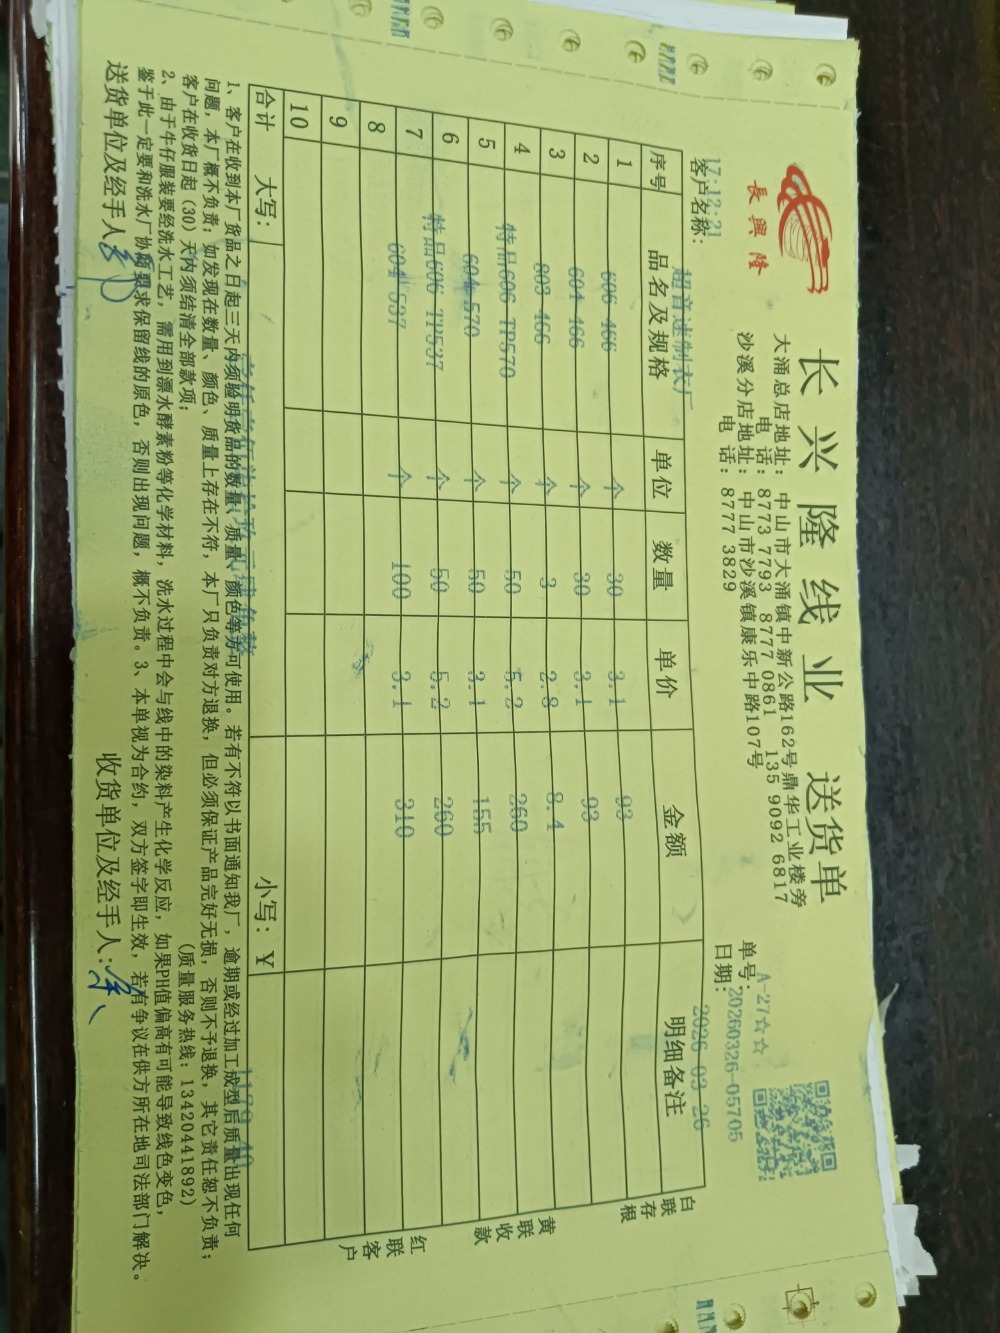 長興隆
长兴隆线业 送货单
大涌总店地址：中山市大涌镇中新公路162号鼎华工业楼旁
电 话：8773 7793 8777 0861 135 9092 6817
沙溪分店地址：中山市沙溪镇康乐中路107号
电 话：8777 3829
单号：A-27☆☆
20260326-05705
日期：2026-03-26
17:12:21
客户名称：超音速制衣厂
序号 品名及规格 单位 数量 单价 金额 明细备注
1 606 466 个 30 3.1 93
2 604 466 个 30 3.1 93
3 803 466 个 3 2.8 8.4
4 特品606 TP570 个 50 5.2 260
5 604 570 个 50 3.1 155
6 特品606 TP537 个 50 5.2 260
7 604 537 个 100 3.1 310
8
9
10
合计 大写： 小写：￥ 1179.40
白联存根
黄联收款
红联客户
1、客户在收到本厂货品之日起三天内须验明货品的数量、质量、颜色等方可使用。若有不符以书面通知我厂，逾期或经过加工成型后质量出现任何
问题，本厂概不负责；如发现在数量、颜色、质量上存在不符，本厂只负责对方退换，但必须保证产品完好无损，否则不予退换，其它责任恕不负责；
客户在收货日起（30）天内须结清全部款项； （质量服务热线：13420441892）
2、由于牛仔服装要经洗水工艺，需用到漂水酵素粉等化学材料，洗水过程中会与线中的染料产生化学反应，如果PH值偏高有可能导致线色变色，
鉴于此一定要和洗水厂协商要求保留线的原色，否则出现问题，概不负责。3、本单视为合约，双方签字即生效，若有争议在供方所在地司法部门解决。
送货单位及经手人： 收货单位及经手人：